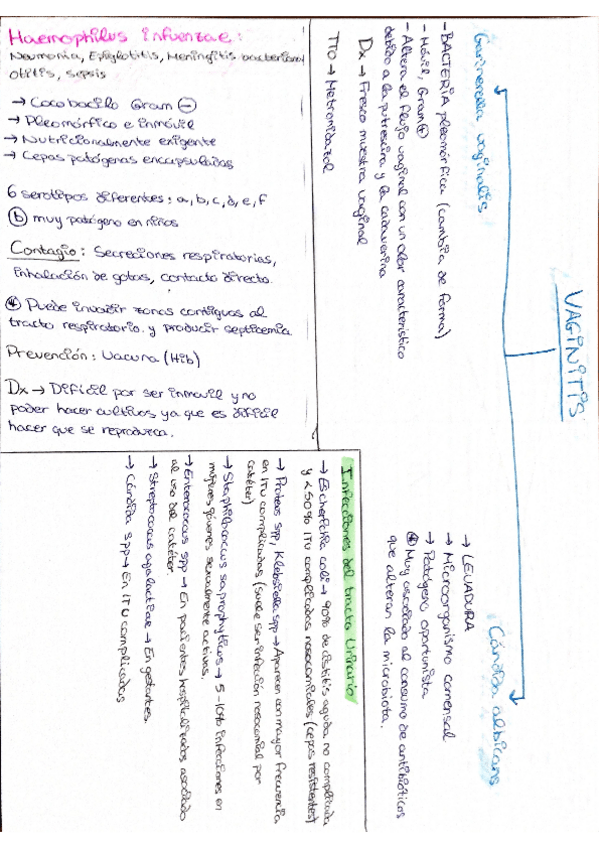 Haemophilus infuenzae:
Neumonía, Epiglotitis, Meningitis bacteriana
Otitis, sepsis
→ Cocobacilo Gram ⊖
→ Pleomórfico e inmóvil
→ Nutricionalmente exigente
→ Cepas patógenas encapsuladas
6 serotipos diferentes: a, b, c, d, e, f
ⓑ muy patógeno en niños
Contagio: Secreciones respiratorias,
inhalación de gotas, contacto directo.
⊛ Puede invadir zonas contiguas al
tracto respiratorio. y producir septicemia
Prevención: Vacuna (Hib)
Dx → Difícil por ser inmovil y no
poder hacer cultivos ya que es difícil
hacer que se reproduzca.
VAGINITIS
Garinerella vaginalis
- BACTERIA pleomórfica (cambia de forma)
- Móvil, Gram ⊕
- Altera el flujo vaginal con un olor característico
debido a la putrescina y la cadaverina
Dx → Fresco muestra vaginal
TTO → Metronidazol
Cándida albicans
→ LEVADURA
→ Microorganismo comensal
→ Patógeno oportunista
⊛ Muy asociado al consumo de antibióticos
que alteran la microbiota.
Infecciones del tracto Urinario
→ Escherichia coli → 90% de cistitis aguda no complicada
y <50% ITU complicadas nosocomiales (cepas resistentes)
→ Proteus spp, Klebsiella spp → Aparecen con mayor frecuencia
en ITU complicadas (suele ser infección nosocomial por
catéter)
→ Staphilococcus saprophyticus → 5-10% infecciones en
mujeres jóvenes sexualmente activas.
→ Enterococcus spp → En pacientes hospitalizados asociado
al uso del catéter
→ Streptococcus agalactiae → En gestantes.
→ Cándida spp → En ITU complicadas